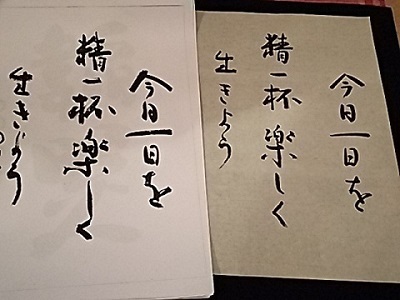 今日一日を
精一杯楽しく
生きよう
今日一日を
精一杯楽しく
生きよう